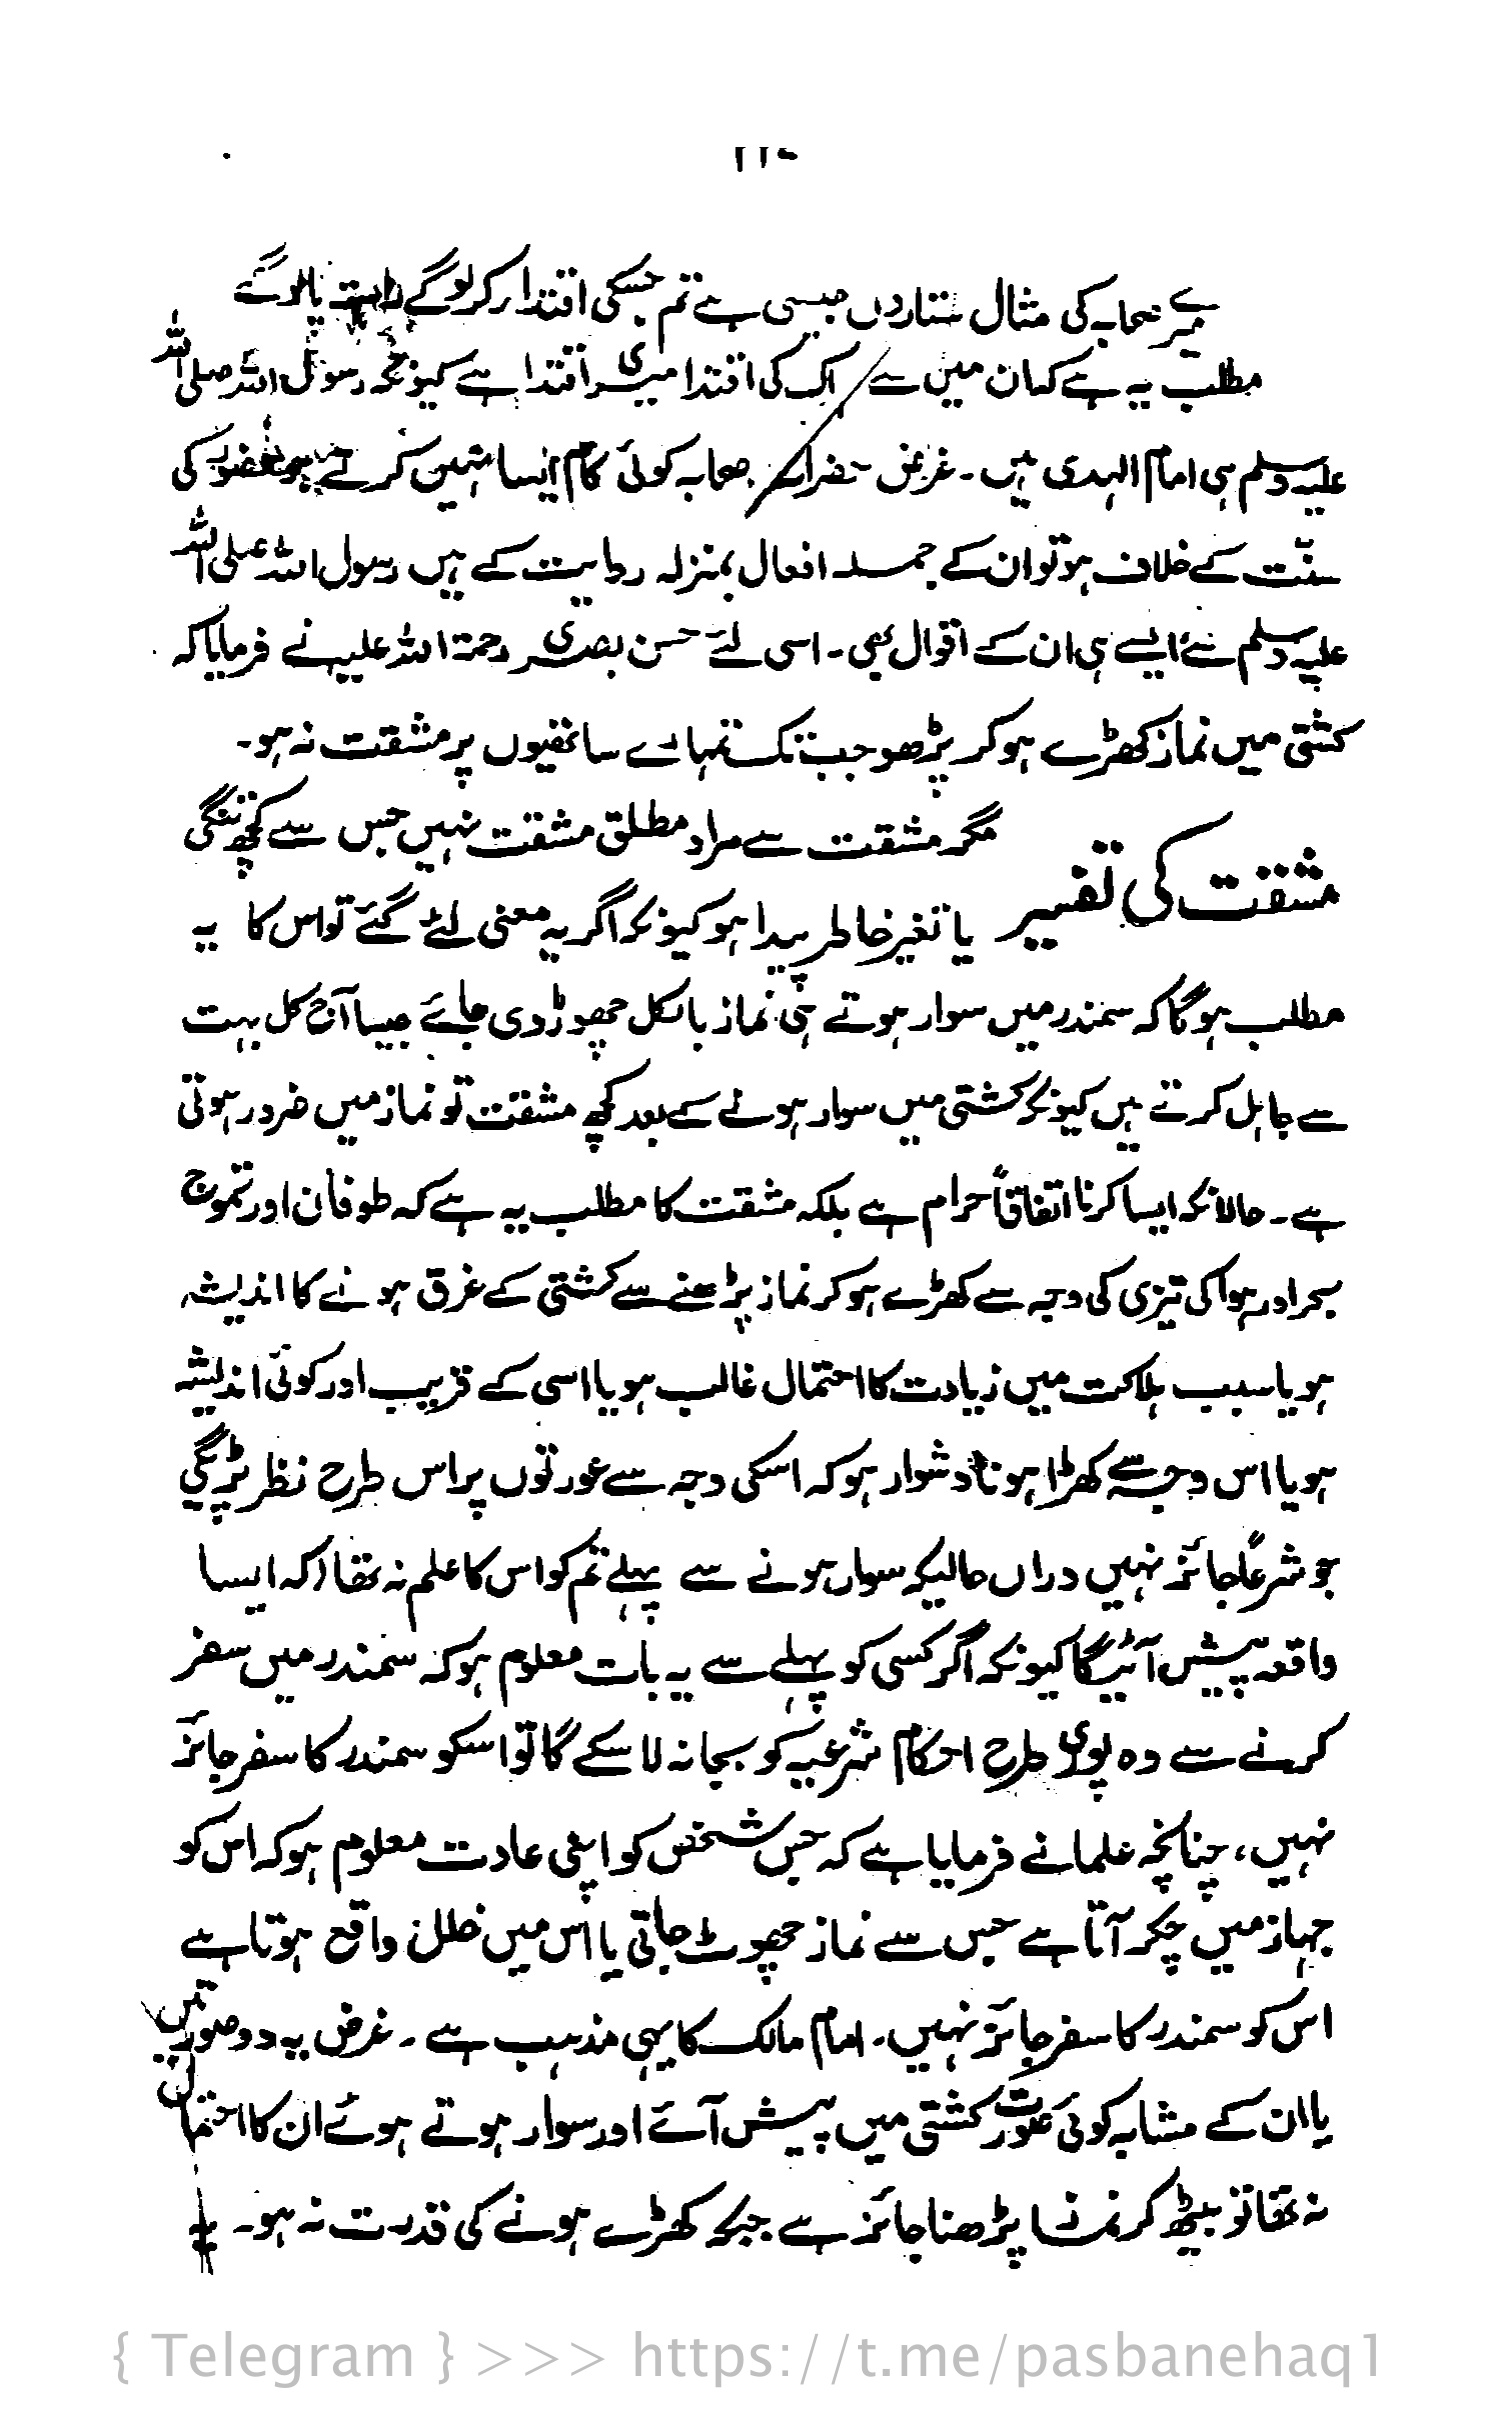 ۱۱۰
میرے صحابہ کی مثال ستاروں جیسی ہے تم جسکی اقتدار کر لوگے راستہ پالوگے
مطلب یہ ہے کہ ان میں سے اک کی اقتدا میری اقتدا ہے کیونکہ رسول اللہ صلی اللہ
علیہ وسلم ہی امام الہدی ہیں۔ غرض حضرات صحابہ کوئی کام ایسا نہیں کرتے جو حضور کی
سنّت کے خلاف ہو تو ان کے جملہ افعال بمنزلہ روایت کے ہیں رسول اللہ صلی اللہ
علیہ وسلم سے ایسے ہی ان کے اقوال بھی۔ اسی لئے حسن بصری رحمۃ اللہ علیہ نے فرمایا کہ
کشتی میں نماز کھڑے ہو کر پڑھو جب تک تمہارے ساتھیوں پر مشقت نہ ہو۔
مشقت کی تفسیر
مگر مشقت سے مراد مطلق مشقت نہیں جس سے کچھ تنگی
یا تغیر خاطر پیدا ہو کیونکہ اگر یہ معنی لئے گئے تو اس کا یہ
مطلب ہوگا کہ سمندر میں سوار ہوتے ہی نماز بالکل چھوڑ دی جائے جیسا آج کل بہت
سے جاہل کرتے ہیں کیونکہ کشتی میں سوار ہونے کے بعد کچھ مشقت تو نماز میں ضرور ہوتی
ہے۔ حالانکہ ایسا کرنا اتفاقاً حرام ہے بلکہ مشقت کا مطلب یہ ہے کہ طوفان اور تموج
بحر اور ہوا کی تیزی کی وجہ سے کھڑے ہو کر نماز پڑھنے سے کشتی کے غرق ہونے کا اندیشہ
ہو یا سبب ہلاکت میں زیادت کا احتمال غالب ہو یا اسی کے قریب اور کوئی اندیشہ
ہو یا اس وجہ سے کھڑا ہونا دشوار ہو کہ اسکی وجہ سے عورتوں پر اس طرح نظر پڑیگی
جو شرعاً جائز نہیں دراں حالیکہ سوار ہونے سے پہلے تم کو اس کا علم نہ تھا کہ ایسا
واقعہ پیش آئیگا کیونکہ اگر کسی کو پہلے سے یہ بات معلوم ہو کہ سمندر میں سفر
کرنے سے وہ پوری طرح احکام شرعیہ کو بجا نہ لا سکے گا تو اسکو سمندر کا سفر جائز
نہیں، چنانچہ علما نے فرمایا ہے کہ جس شخص کو اپنی عادت معلوم ہو کہ اس کو
جہاز میں چکر آتا ہے جس سے نماز چھوٹ جاتی یا اس میں خلل واقع ہوتا ہے
اس کو سمندر کا سفر جائز نہیں۔ امام مالک کا یہی مذہب ہے۔ غرض یہ دو صورتیں
یا ان کے مشابہ کوئی صورت کشتی میں پیش آئے اور سوار ہوتے ہوئے ان کا احتمال
نہ تھا تو بیٹھ کر نماز پڑھنا جائز ہے جبکہ کھڑے ہونے کی قدرت نہ ہو۔ یہ
{ Telegram } >>> https://t.me/pasbanehaq1